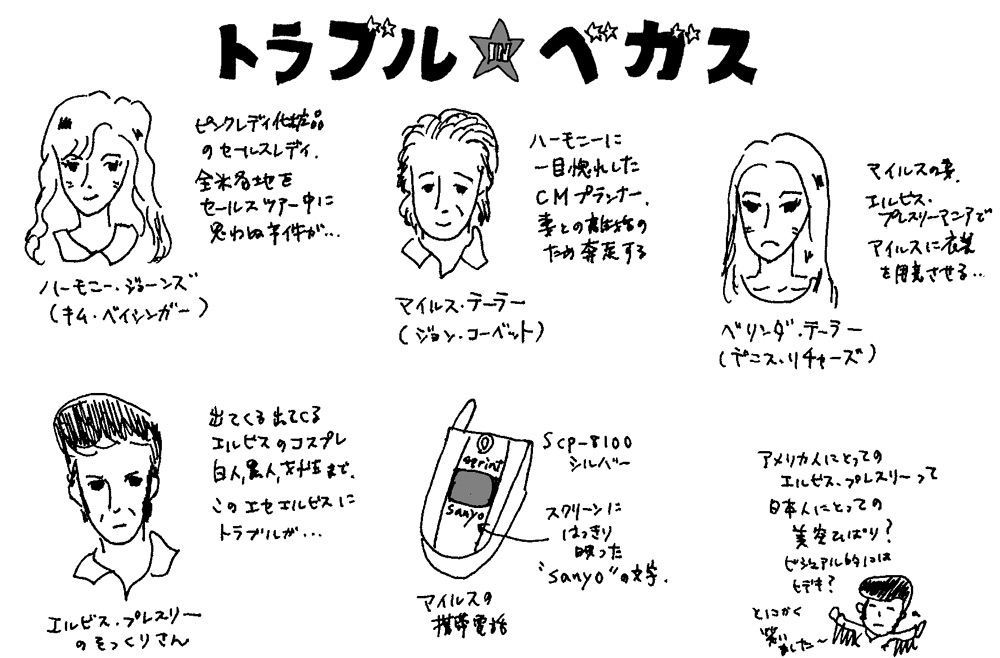 トラブル IN ベガス
ピンクレディ化粧品
のセールスレディ.
全米各地を
セールスツアー中に
思わぬ事件が…
ハーモニー・ジョーンズ
(キム・ベイシンガー)
ハーモニーに
一目惚れした
CMプランナー.
妻との離婚の
ため奔走する
マイルス・テーラー
(ジョン・コーベット)
マイルスの妻.
エルビス・
プレスリーマニアで
マイルスに衣装
を用意させる…
ベリンダ・テーラー
(デニス・リチャーズ)
出てくる出てくる
エルビスのコスプレ
白人,黒人,女性まで.
このエセエルビスに
トラブルが…
エルビス・プレスリー
のそっくりさん
sprint
sanyo
Scp-8100
シルバー
スクリーンに
はっきり
映った
"sanyo"の文字.
マイルスの
携帯電話
アメリカ人にとっての
エルビス・プレスリーって
日本人にとっての
美空ひばり?
ビジュアル的には
ヒデキ?
とにかく
笑い
ました〜